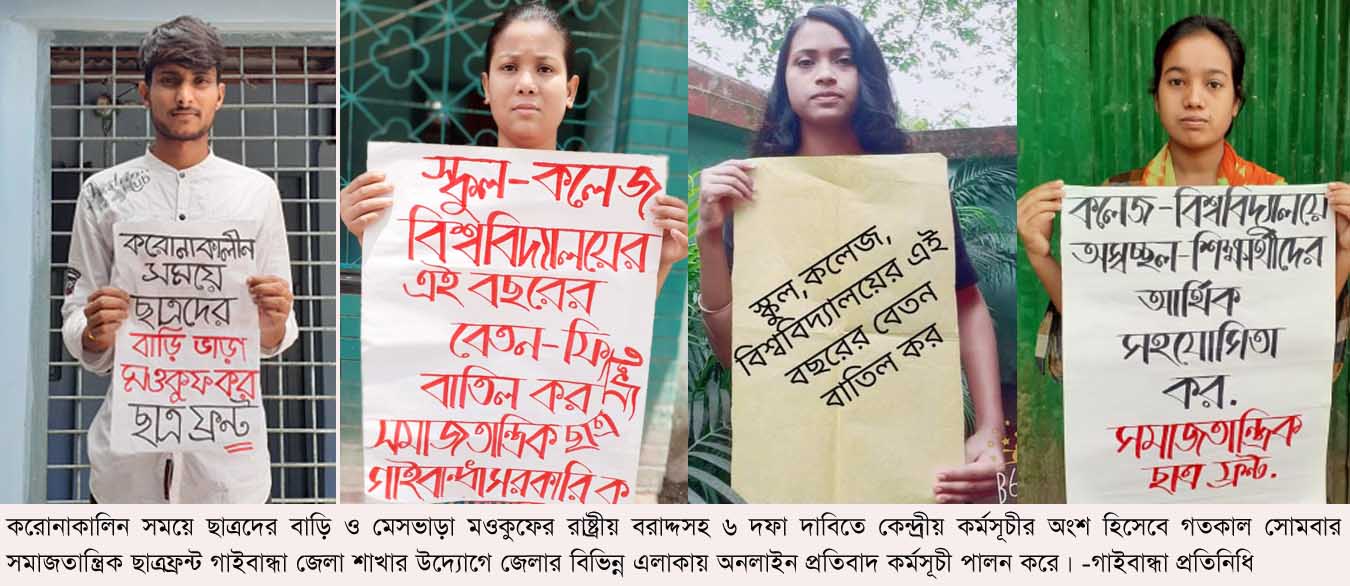 করোনাকালীন
সময়ে
ছাত্রদের
বাড়ি ভাড়া
মওকুফ কর
ছাত্র ফ্রন্ট
স্কুল-কলেজ
বিশ্ববিদ্যালয়ের
এই বছরের
বেতন-ফি
বাতিল কর
সমাজতান্ত্রিক ছাত্র
গাইবান্ধা সরকারি ক
স্কুল, কলেজ,
বিশ্ববিদ্যালয়ের এই
বছরের বেতন
বাতিল কর
কলেজ-বিশ্ববিদ্যালয়ে
অস্বচ্ছল-শিক্ষার্থীদের
আর্থিক
সহযোগিতা
কর.
সমাজতান্ত্রিক
ছাত্র ফ্রন্ট.
করোনাকালিন সময়ে ছাত্রদের বাড়ি ও মেসভাড়া মওকুফের রাষ্ট্রীয় বরাদ্দসহ ৬ দফা দাবিতে কেন্দ্রীয় কর্মসূচীর অংশ হিসেবে গতকাল সোমবার
সমাজতান্ত্রিক ছাত্রফ্রন্ট গাইবান্ধা জেলা শাখার উদ্যোগে জেলার বিভিন্ন এলাকায় অনলাইন প্রতিবাদ কর্মসূচী পালন করে। -গাইবান্ধা প্রতিনিধি